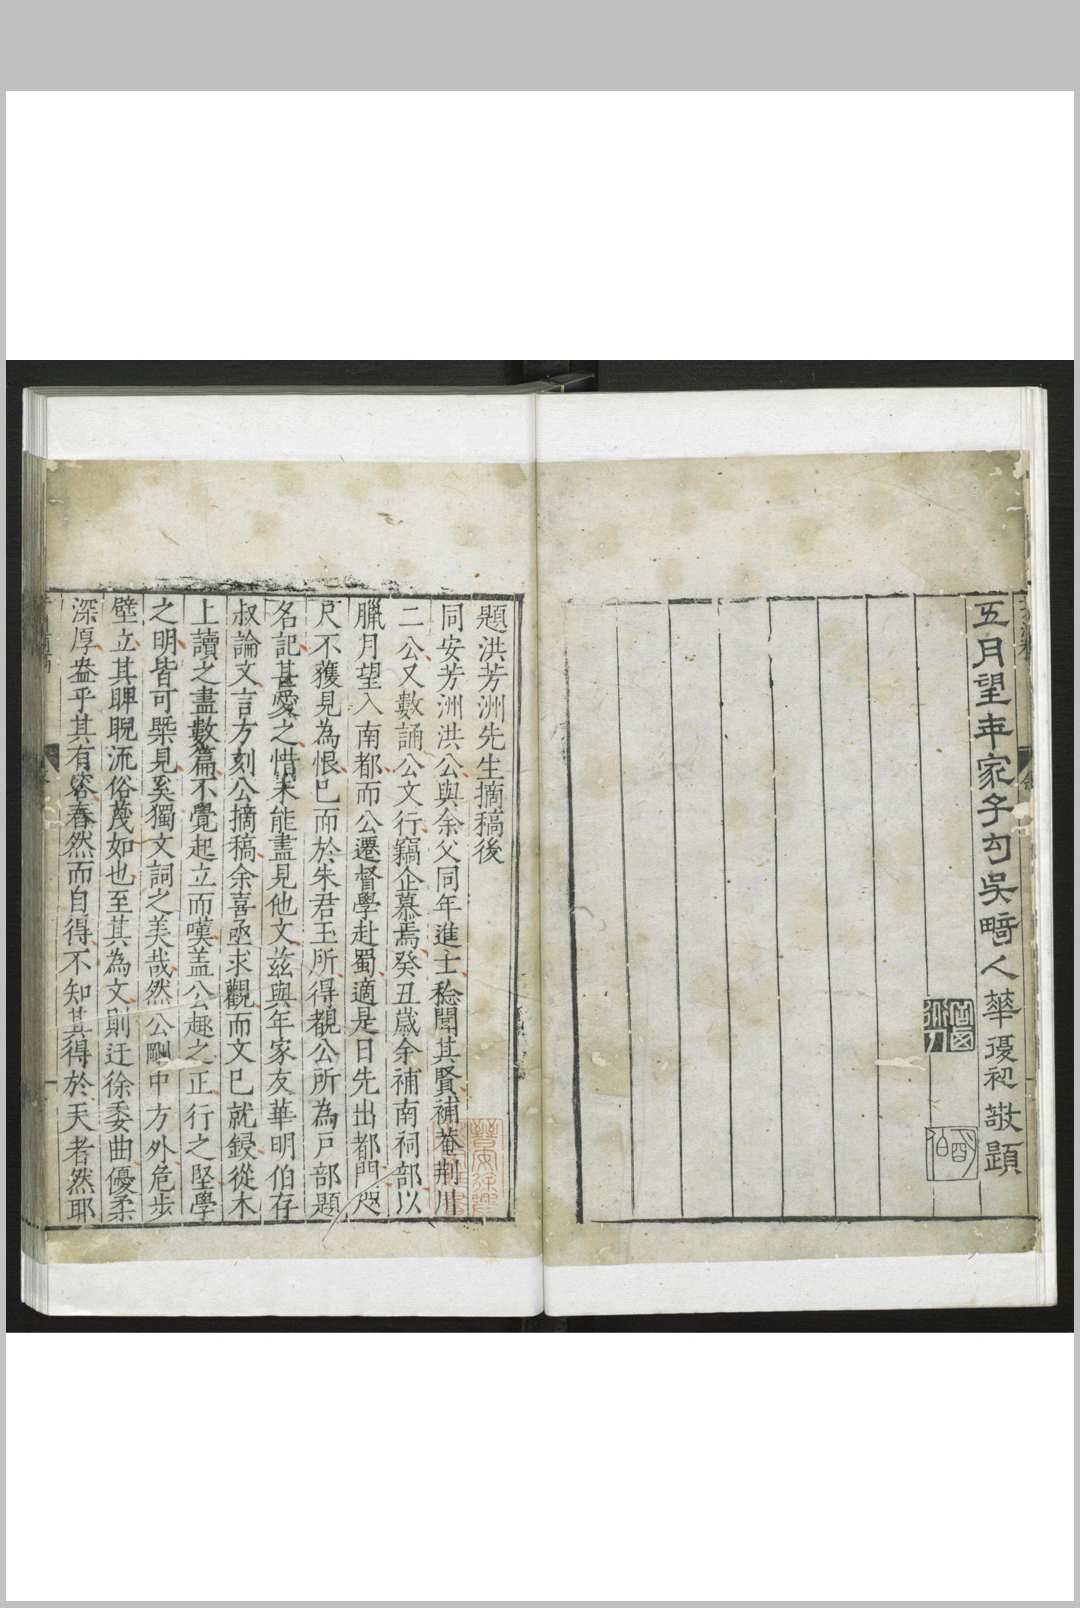 五月望年家子勾吳畸人華復初敬題
題洪芳洲先生摘稿後
同安芳洲洪公與余父同年進士稔聞其賢補菴荆川
二公又數誦公文行竊企慕焉癸丑歲余補南祠部以
臘月望入南都而公遷督學赴蜀適是日先出都門咫
尺不獲見為恨巳而於朱君玉所得覩公所為戸部題
名記甚愛之惜未能盡見他文茲與年家友華明伯存
叔論文言方刻公摘稿余喜亟求觀而文巳就鋟從木
上讀之盡數篇不覺起立而嘆盖公趣之正行之堅學
之明皆可槩見奚獨文詞之美哉然公剛中方外危步
壁立其睥睨流俗蔑如也至其為文則迂徐委曲優柔
深厚盎乎其有容春然而自得不知其得於天者然耶